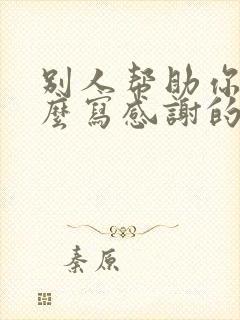 別人帮助你
麼寫感謝的
秦原